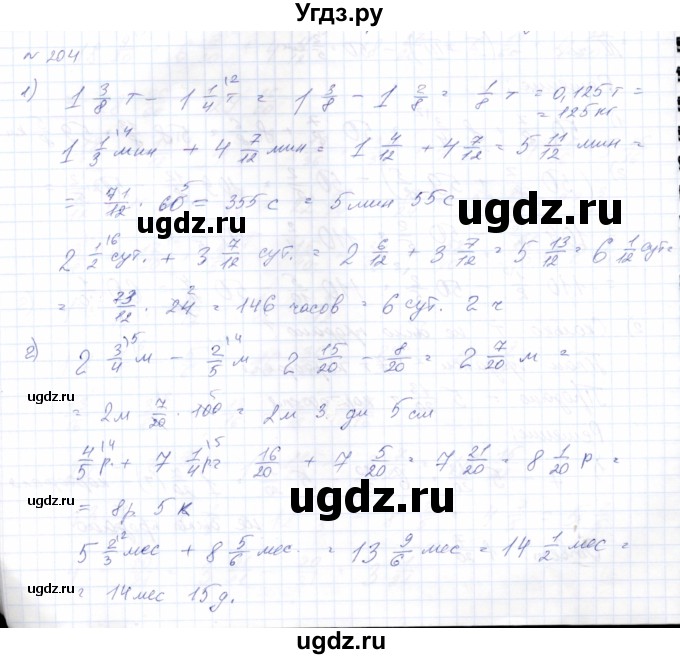 Угдз.ру
№ 204
1) 1 3/8 т - 1 1/4 \2 т = 1 3/8 - 1 2/8 = 1/8 т = 0,125 т =
= 125 кг
1 1/3 \4 мин + 4 7/12 мин = 1 4/12 + 4 7/12 = 5 11/12 мин =
= 71/12 · 60 5 = 355 с = 5 мин 55 с
угдз.ру
угдз.ру
2 1/2 \6 сут. + 3 7/12 сут. = 2 6/12 + 3 7/12 = 5 13/12 = 6 1/12 сут =
= 73/12 · 24 2 = 146 часов = 6 сут. 2 ч
ugdz.ru
2) 2 3/4 \5 м - 2/5 \4 м 2 15/20 - 8/20 = 2 7/20 м =
ugdz.ru
= 2м 7/20 · 100 5 = 2м 3 дм 5 см
4/5 \4 р. + 7 1/4 \5 р = 16/20 + 7 5/20 = 7 21/20 = 8 1/20 р =
ugdz.ru
= 8р 5 к
ugdz.ru
5 2/3 \2 мес + 8 5/6 мес. = 13 9/6 мес = 14 1/2 мес =
ugdz.ru
= 14 мес 15 д.
ugdz.ru